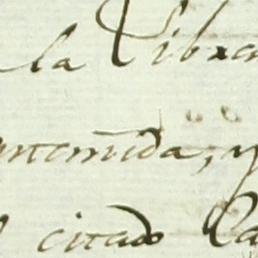 la Libran
ntenida, y
citado